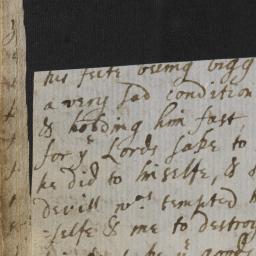 his feete being bigg
a very sad condition
& holding him fast
for yᵉ Lords sake to
he did to himselfe, &
Devill wᶜʰ tempted
=selfe & me to destroy
yᵉ good